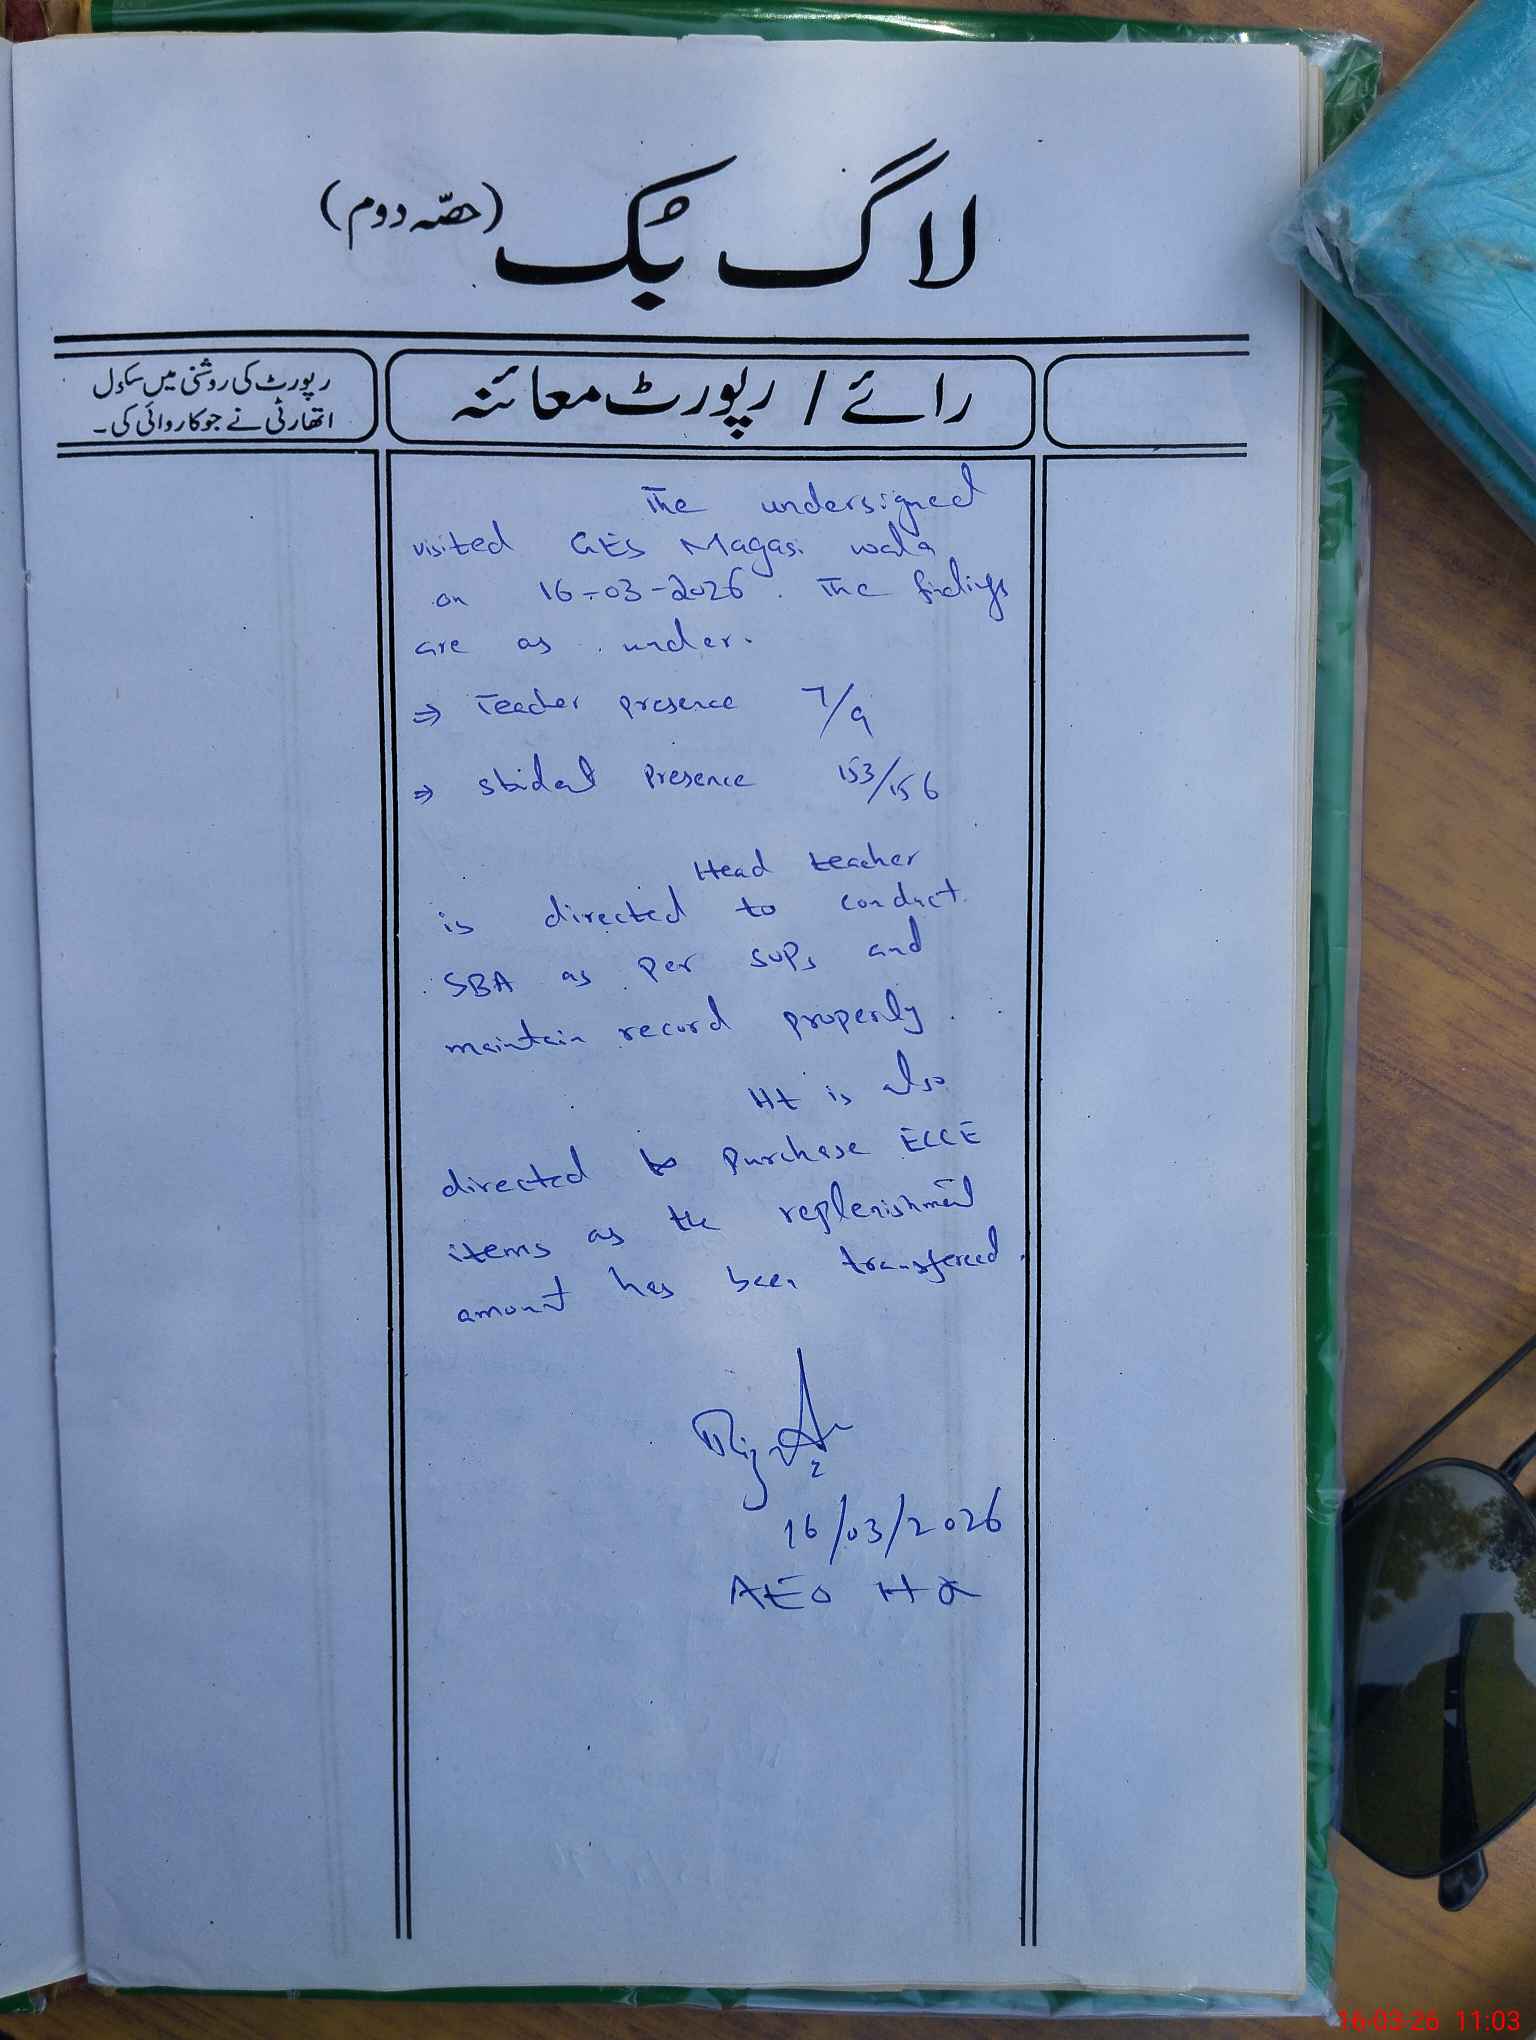 لاگ بُک (حصّہ دوم)
رائے / رپورٹ معائنہ
رپورٹ کی روشنی میں سکول
اتھارٹی نے جو کاروائی کی۔
The undersigned
visited GES Magasi wala
on 16-03-2026. The findings
are as under.
⇒ Teacher presence 7/9
⇒ student presence 153/156
Head teacher
is directed to conduct
SBA as per SOPs and
maintain record properly.
Ht is also
directed to purchase ECCE
items as the replenishment
amount has been transfered.
16/03/2026
AEO
16-03-26 11:03